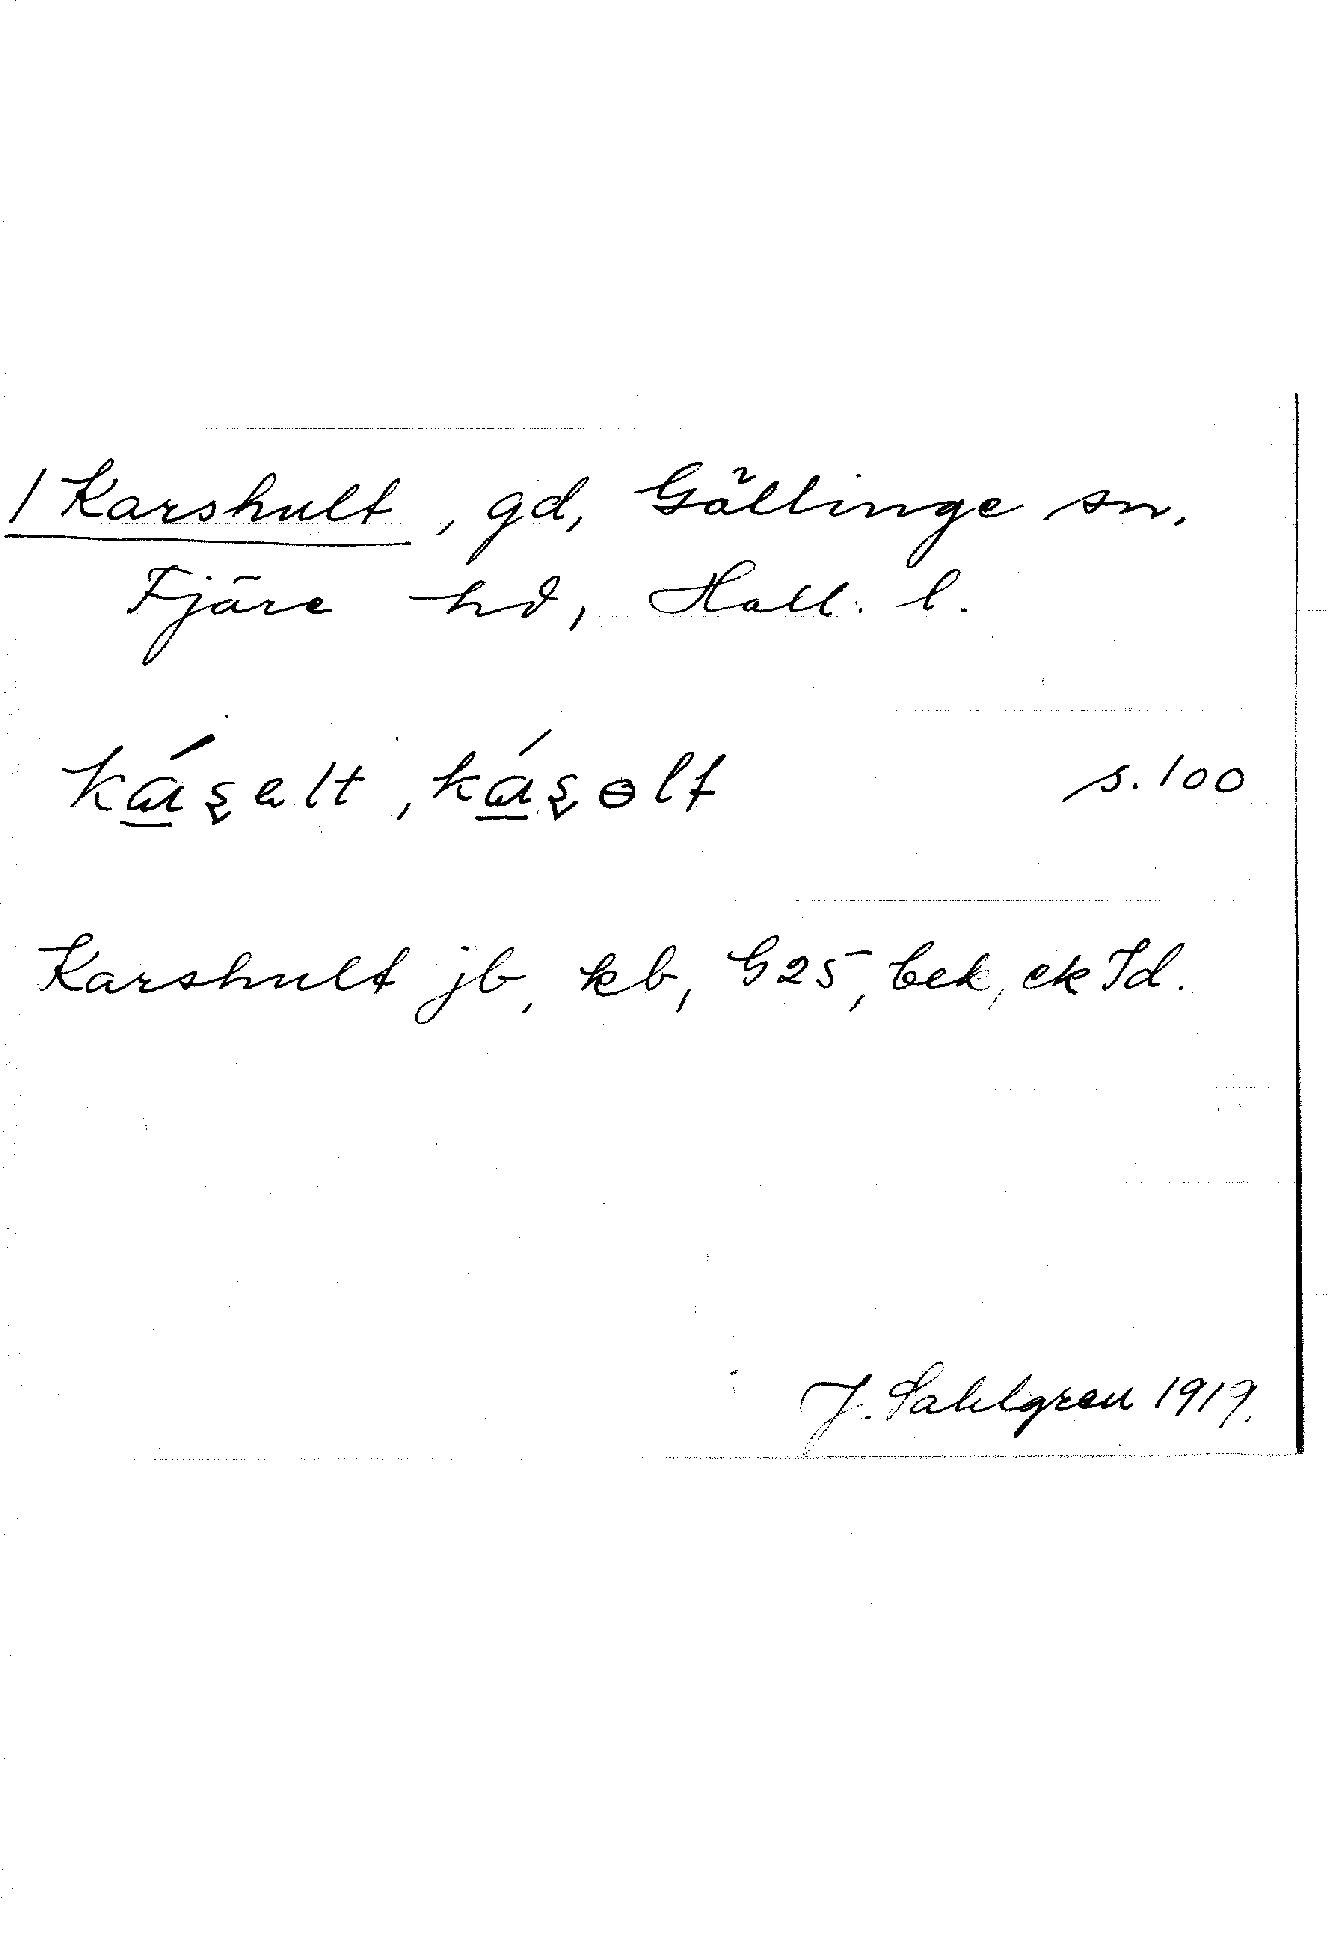 1 Karshult, gd, Gällinge sn,
Fjäre hd, Hall. l.
s. 100
Karshult jb, kb, G25, bek, ek Id.
J. Sahlgren 1919.